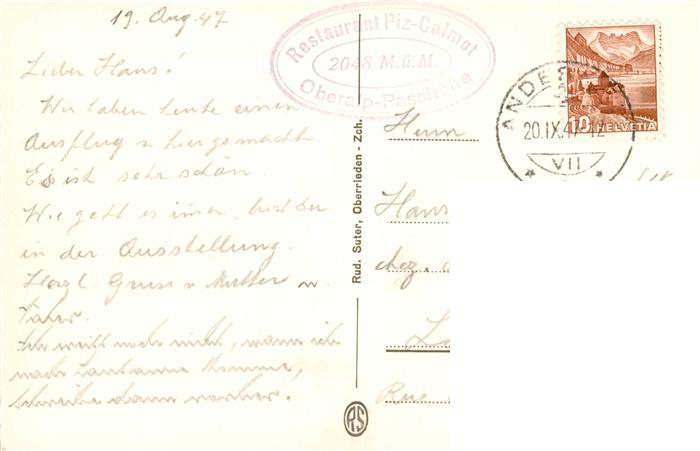 19. Aug 47
Lieber Hans!
Wir haben heute einen
Ausflug n hier gemacht
Es ist sehr schön
Wie geht es immer, bist Du
in der Ausstellung.
Herzl. Gruss v Mutter u.
Vater.
Ich weiss noch nicht, wann ich
nach Lausanne komme,
schreibe dann vorher.
Restaurant Piz-Calmot
2048 M.ü.M.
Oberalp-Passhöhe
Rud. Suter, Oberrieden - Zch.
RS
10 HELVETIA
20.IX.47-12
VII
Herrn
Hans
chez.
Rue